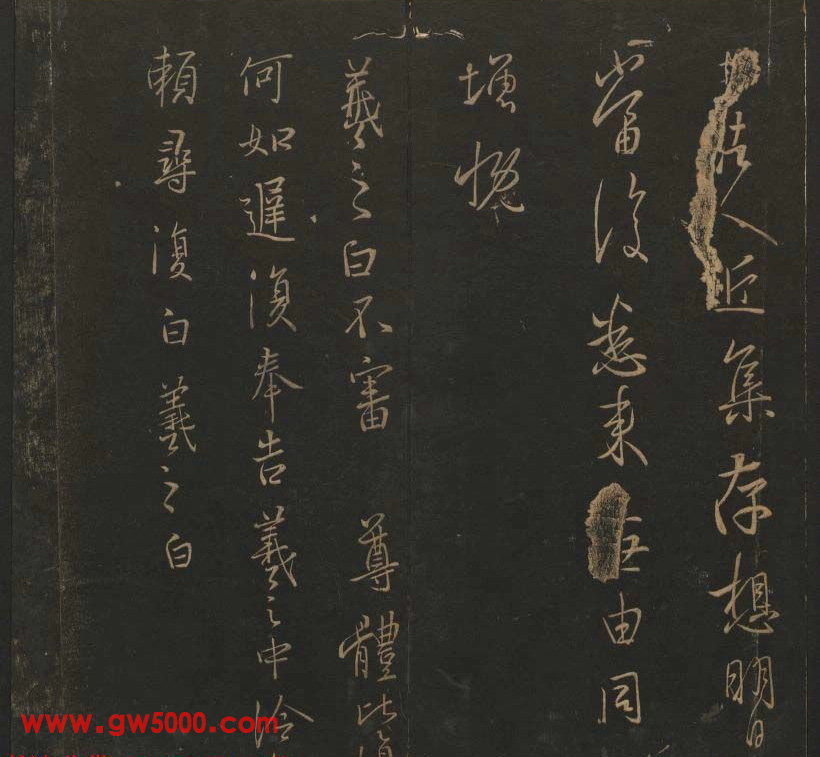 古人近集存想明日
當復悉來無由同
增慨
羲之白不審 尊體比復
何如遲復奉告羲之中冷
賴尋復白羲之白
www.gw5000.com